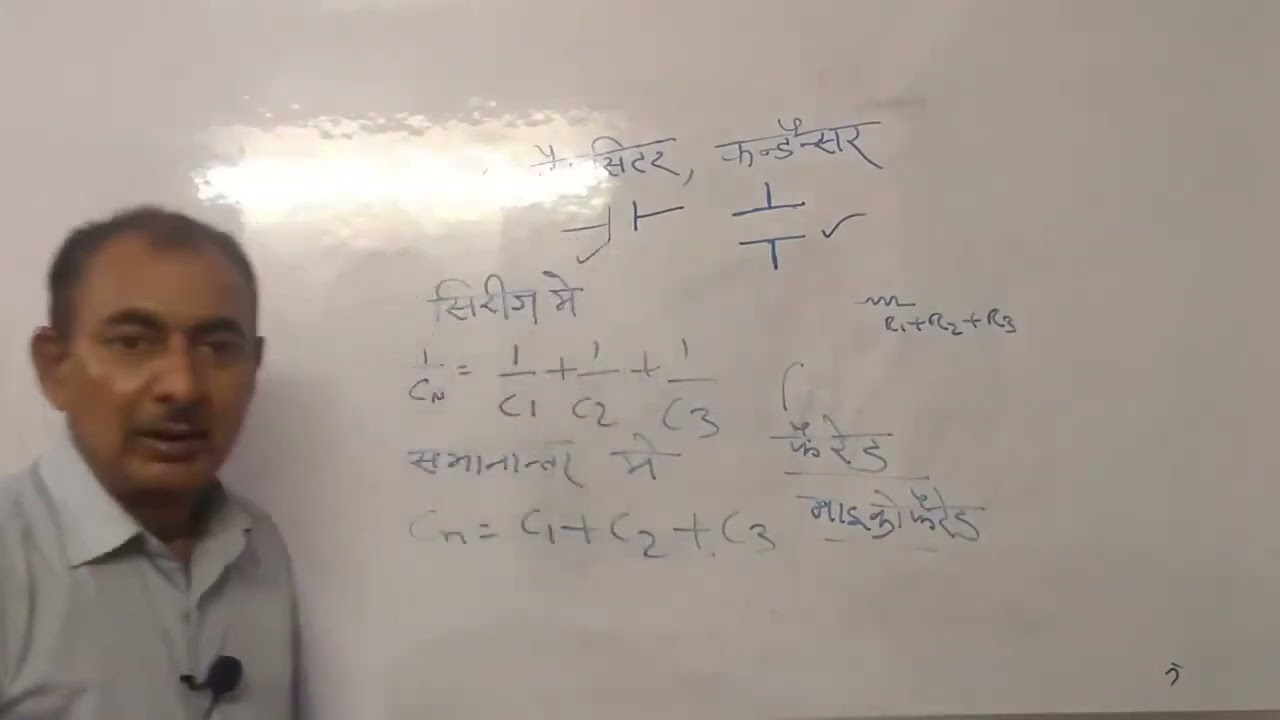 सिटर, कन्डैन्सर
सिरीज मे
R1+R2+R3
1/CN = 1/C1 + 1/C2 + 1/C3
फैरेड
समानान्तर मे
माइक्रो फैरेड
Cn = C1 + C2 + C3